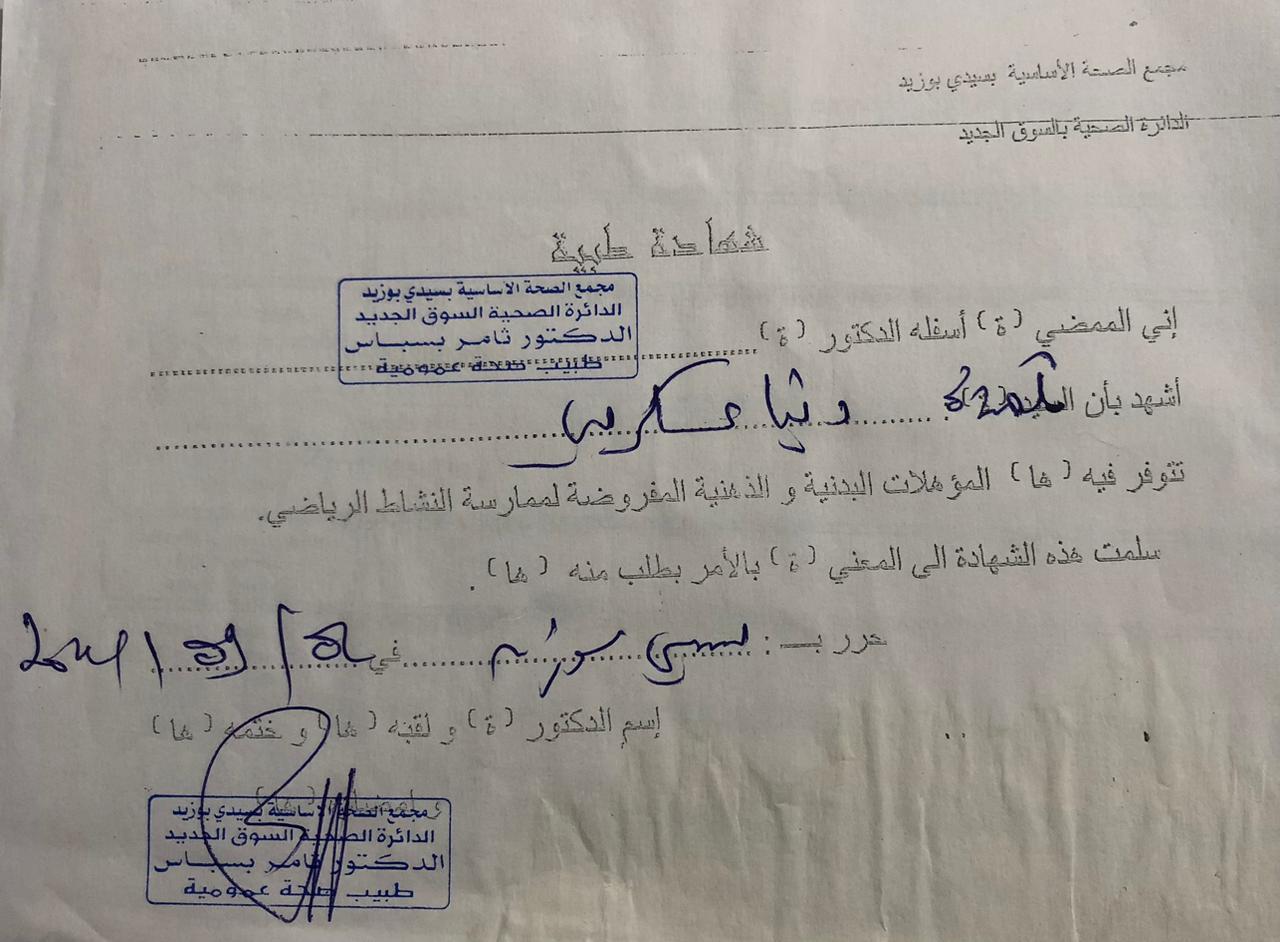 مجمع الصحة الأساسية بسيدي بوزيد
الدائرة الصحية بالسوق الجديد
شهادة طبية
مجمع الصحة الأساسية بسيدي بوزيد
الدائرة الصحية السوق الجديد
الدكتور ثامر بسباس
طبيب صحة عمومية
إني الممضي (ة) أسفله الدكتور (ة)
أشهد بأن
تتوفر فيه (ها) المؤهلات البدنية و الذهنية المفروضة لممارسة النشاط الرياضي.
سلمت هذه الشهادة الى المعني (ة) بالأمر بطلب منه (ها).
حرر بـ : في
إسم الدكتور (ة) و لقبه (ها) و ختمه (ها)
مجمع الصحة الأساسية بسيدي بوزيد
الدائرة الصحية السوق الجديد
الدكتور ثامر بسباس
طبيب صحة عمومية